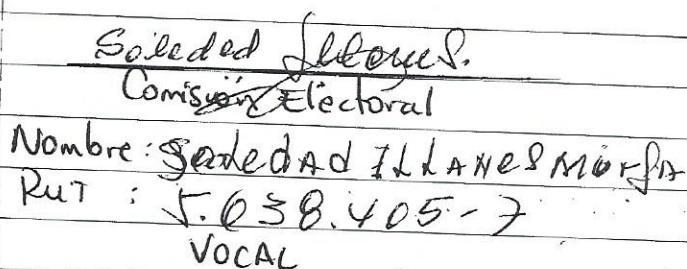 Soledad Illanes.
Comisión Electoral
Nombre: Soledad ILLANES
RUT : 5.638.405-7
VOCAL